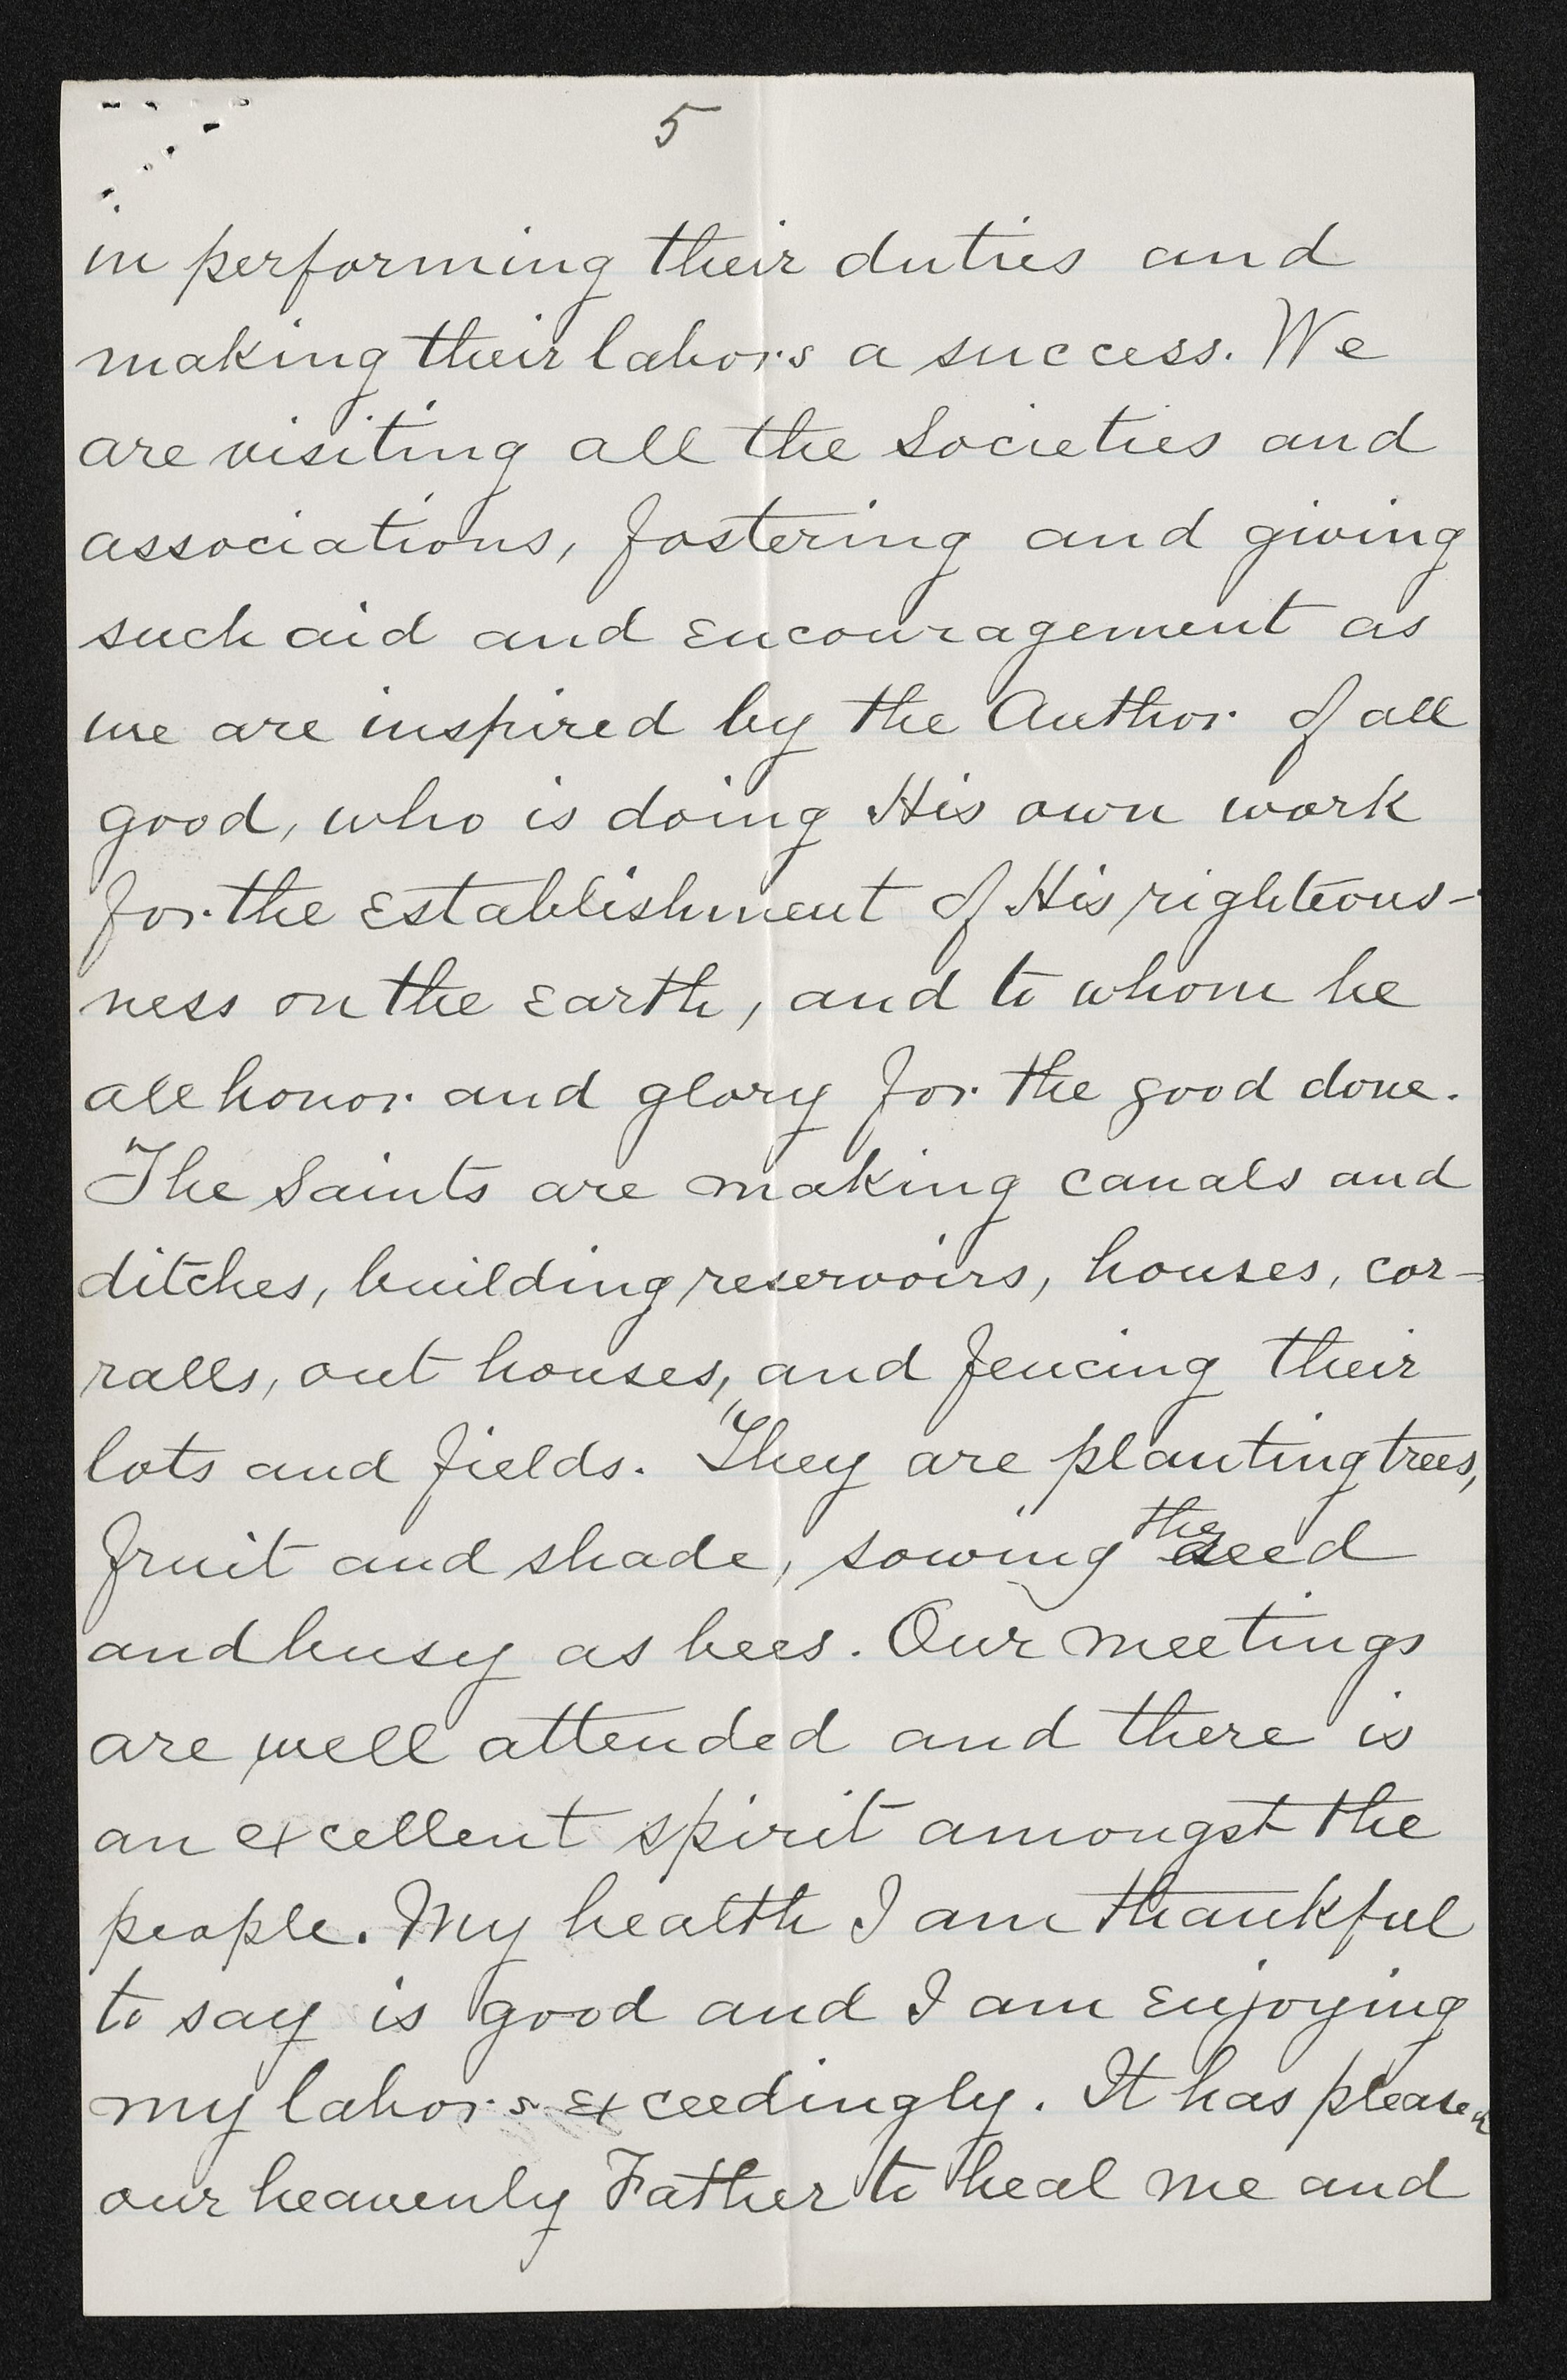 5
in performing their duties and
making their labors a success. We
are visiting all the Societies and
associations, fostering and giving
such aid and encouragement as
we are inspired by the Author of all
good, who is doing His own work
for the establishment of His righteous-
ness on the earth, and to whom be
all honor and glory for the good done.
The Saints are making canals and
ditches, building reservoirs, houses, cor-
ralls, out houses, and fencing their
lots and fields. They are planting trees,
fruit and shade, sowing the seed
and busy as bees. Our meetings
are well attended and there is
an excellent spirit amongst the
people. My health I am thankful
to say is good and I am enjoying
my labors exceedingly. It has pleased
our heavenly Father to heal me and